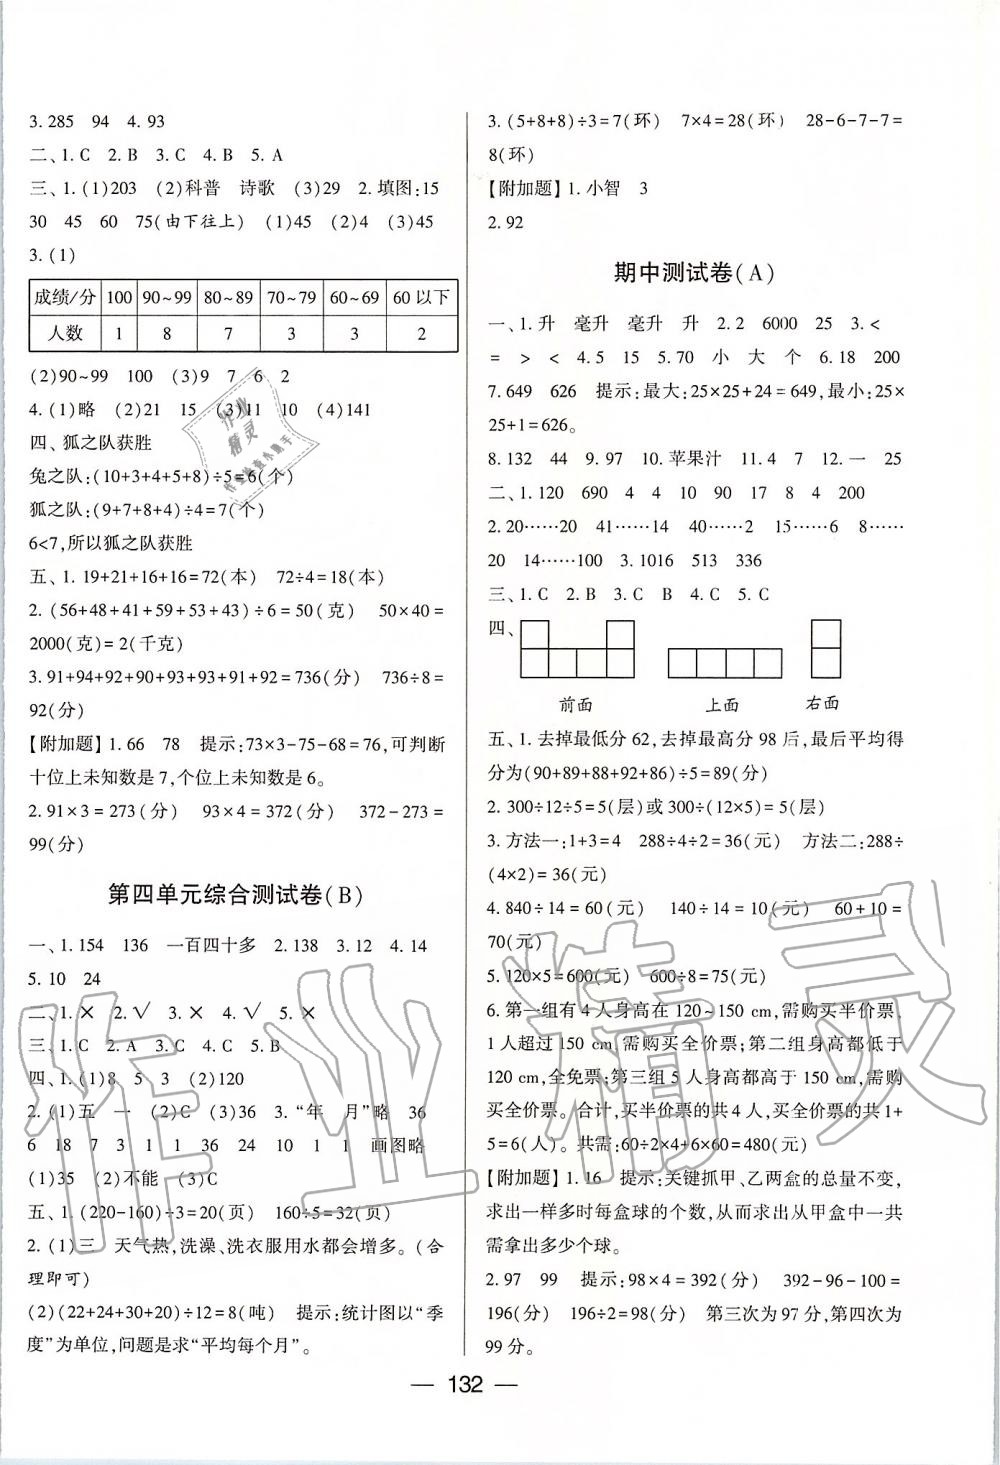 3. 285 94 4. 93
二、1. C 2. B 3. C 4. B 5. A
三、1. (1)203 (2)科普 诗歌 (3)29 2. 填图:15
30 45 60 75(由下往上) (1)45 (2)4 (3)45
3. (1)
成绩/分 100 90~99 80~89 70~79 60~69 60以下
人数 1 8 7 3 3 2
(2)90~99 100 (3)9 7 6 2
4. (1)略 (2)21 15 (3)11 10 (4)141
四、狐之队获胜
兔之队:(10+3+4+5+8)÷5=6(个)
狐之队:(9+7+8+4)÷4=7(个)
6<7,所以狐之队获胜
五、1. 19+21+16+16=72(本) 72÷4=18(本)
2. (56+48+41+59+53+43)÷6=50(克) 50×40=
2000(克)=2(千克)
3. 91+94+92+90+93+93+91+92=736(分) 736÷8=
92(分)
【附加题】1. 66 78 提示:73×3-75-68=76,可判断
十位上未知数是7,个位上未知数是6。
2. 91×3=273(分) 93×4=372(分) 372-273=
99(分)
第四单元综合测试卷(B)
一、1. 154 136 一百四十多 2. 138 3. 12 4. 14
5. 10 24
二、1. × 2. √ 3. × 4. √ 5. ×
三、1. C 2. A 3. C 4. C 5. B
四、1. (1)8 5 3 (2)120
2. (1)五 一 (2)C (3)36 3. “年 月”略 36
6 18 7 3 1 1 36 24 10 1 1 画图略
(1)35 (2)不能 (3)C
五、1. (220-160)÷3=20(页) 160÷5=32(页)
2. (1)三 天气热,洗澡、洗衣服用水都会增多。(合
理即可)
(2)(22+24+30+20)÷12=8(吨) 提示:统计图以“季
度”为单位,问题是求“平均每个月”。
3. (5+8+8)÷3=7(环) 7×4=28(环) 28-6-7-7=
8(环)
【附加题】1. 小智 3
2. 92
期中测试卷(A)
一、1. 升 毫升 毫升 升 2. 2 6000 25 3. <
= > < 4. 5 15 5. 70 小 大 个 6. 18 200
7. 649 626 提示:最大:25×25+24=649,最小:25×
25+1=626。
8. 132 44 9. 97 10. 苹果汁 11. 4 7 12. 一 25
二、1. 120 690 4 4 10 90 17 8 4 200
2. 20……20 41……14 40……2 15……6 8……
20 14……100 3. 1016 513 336
三、1. C 2. B 3. C B 4. C 5. C
四、
前面 上面 右面
五、1. 去掉最低分62,去掉最高分98后,最后平均得
分为(90+89+88+92+86)÷5=89(分)
2. 300÷12÷5=5(层)或300÷(12×5)=5(层)
3. 方法一:1+3=4 288÷4÷2=36(元) 方法二:288÷
(4×2)=36(元)
4. 840÷14=60(元) 140÷14=10(元) 60+10=
70(元)
5. 120×5=600(元) 600÷8=75(元)
6. 第一组有4人身高在120~150 cm,需购买半价票,
1人超过150 cm,需购买全价票;第二组身高都低于
120 cm,全免票;第三组5人身高都高于150 cm,需购
买全价票。合计,买半价票的共4人,买全价票的共1+
5=6(人)。共需:60÷2×4+6×60=480(元)
【附加题】1. 16 提示:关键抓甲、乙两盒的总量不变,
求出一样多时每盒球的个数,从而求出从甲盒中一共
需拿出多少个球。
2. 97 99 提示:98×4=392(分) 392-96-100=
196(分) 196÷2=98(分) 第三次为97分,第四次为
99分。
— 132 —
作业精灵
作业精灵